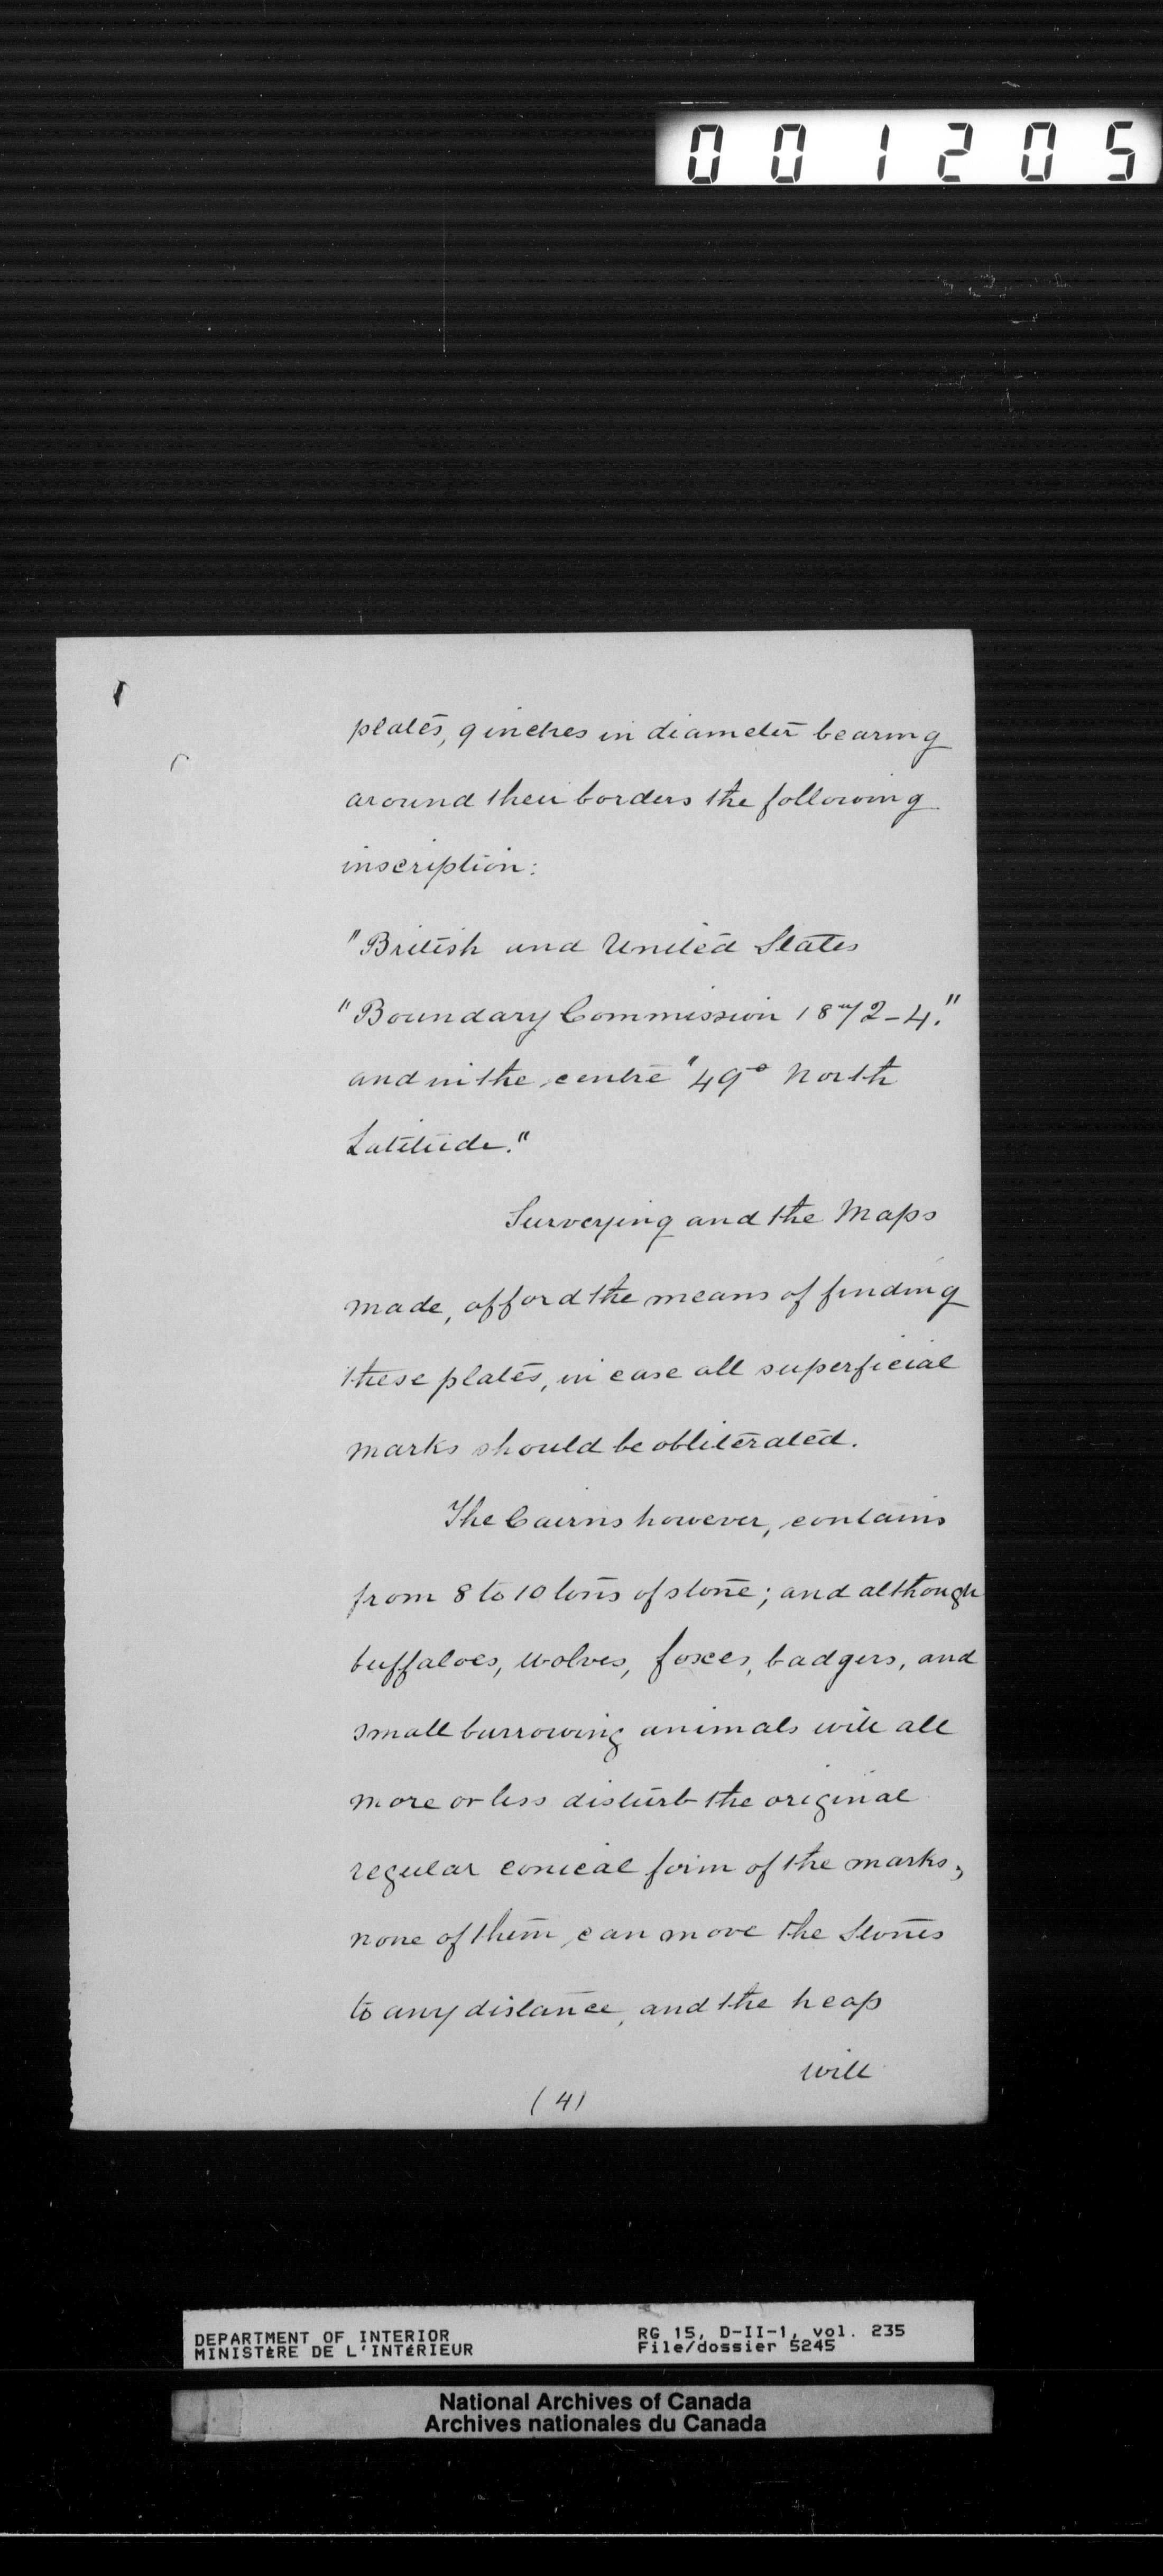 001205
plates, 9 inches in diameter bearing
around their borders the following
inscription:
"British and United States
"Boundary Commission 1872-4."
and in the centre "49° North
Latitude."
Surveying and the Maps
made, afford the means of finding
these plates, in case all superficial
marks should be obliterated.
The Cairns however, contains
from 8 to 10 tons of stone; and although
buffaloes, wolves, foxes, badgers, and
small burrowing animals will all
more or less disturb the original
regular conical form of the marks,
none of them can move the Stones
to any distance, and the heap
will
(4)
DEPARTMENT OF INTERIOR
MINISTÈRE DE L'INTÉRIEUR
RG 15, D-II-1, vol. 235
File/dossier 5245
National Archives of Canada
Archives nationales du Canada